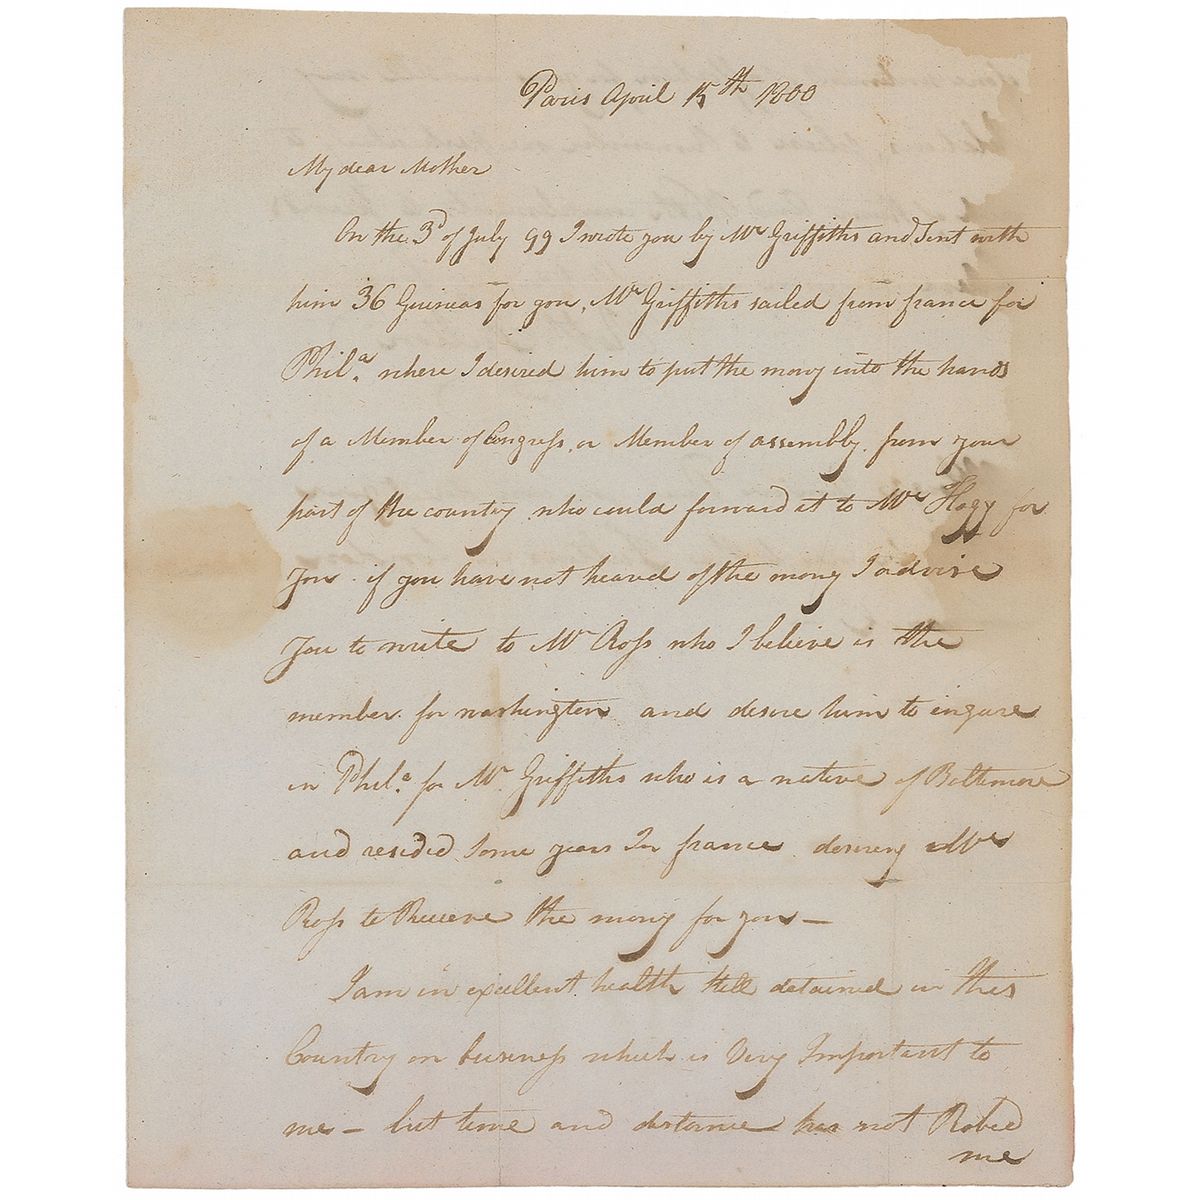 Paris April 15th 1800
My dear Mother
On the 3d of July 99 I wrote you by Mr Griffiths and Sent with
him 36 Guineas for you, Mr Griffiths sailed from france for
Phila. where I desired him to put the mony into the hands
of a Member of Congress, or Member of assembly from your
part of the country who could forward it to Mr Hogg for
you. if you have not heared of the mony I advise
you to write to Mr Ross who I believe is the
member for washington and desire him to inquire
in Phila. for Mr Griffiths who is a native of Baltimore
and resided Some years In france desiring Mr
Ross to Receive the mony for you —
I am in excellent health Still detained in this
Country on business which is Very Important to
me — but time and distance has not Robed
me